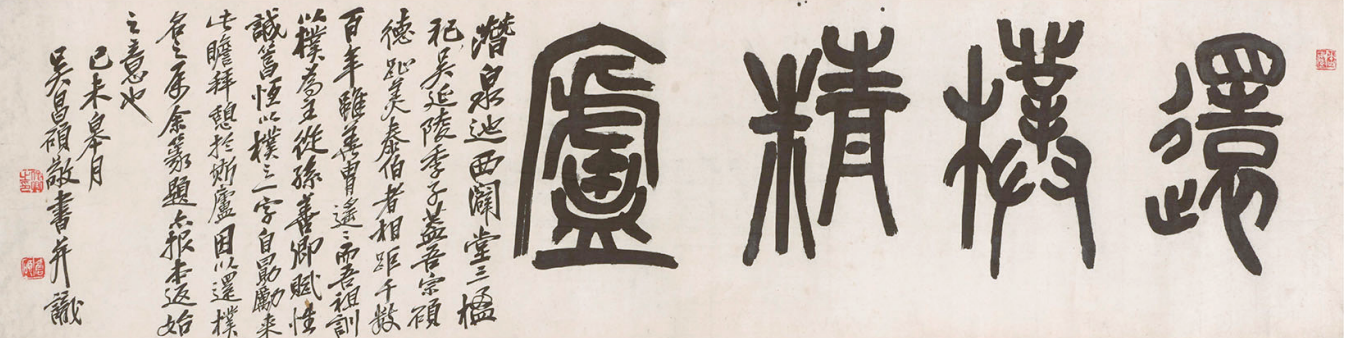 還樸精廬
潛泉迆西闢堂三楹
祀吳延陵季子蓋吾宗碩
德趾美泰伯者相距千數
百年雖華胄遙〻而吾祖訓
以樸為主從孫善卿賦性
誠篤恒以樸之一字自勖勵來
此瞻拜憩於斯廬因以還樸
名之屬余篆題亦報本返始
之意也
己未皋月
吳昌碩敬書并識